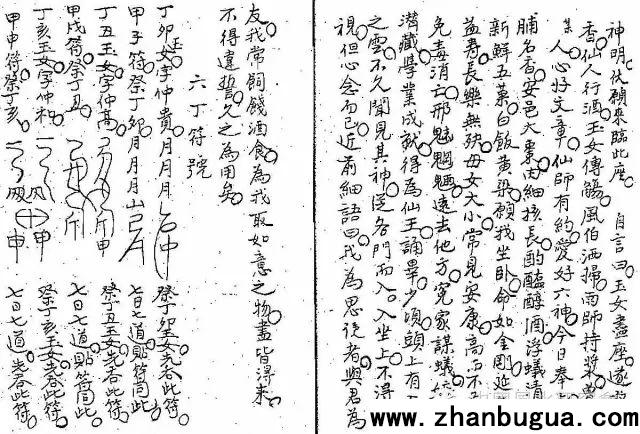 神明伏願來臨此座 自言曰玉女盡座遂
香仙人行酒玉女傳觴風伯洒掃雨師持漿
人心好文章仙師有約愛好六神今日奉
脯名香安邑大棗由細核長酌醞醇酒浮蟻清
新鮮五菓白飯黃粱願我坐卧命如金剛延
益壽長樂無殃毋女大小常見安康高而不
免毒消亡邪魅魍魎遠去他方冤家謀
潛藏學業成就得為仙王誦畢少頃頭上有
之雲不久聞見其神從各門而入入坐上不得
視但心念而已近前細語曰我為思從者與君為
友我常飼餞酒食為我取如意之物盡皆得來
不得違誓久之為用矣
六丁符號
丁卯玉女字仲貴月月月 祭丁卯玉女先吞此符
甲子符祭丁卯月月月 七日七道貼符同此
丁丑玉女字仲高 申 祭丁丑玉女先吞此符
甲戌符祭丁丑 七日七道貼符同此
丁亥玉女字仲和 申 祭丁亥玉女先吞此符
甲申符祭丁亥 申 七日七道先吞此符
www.zhanbugua.com